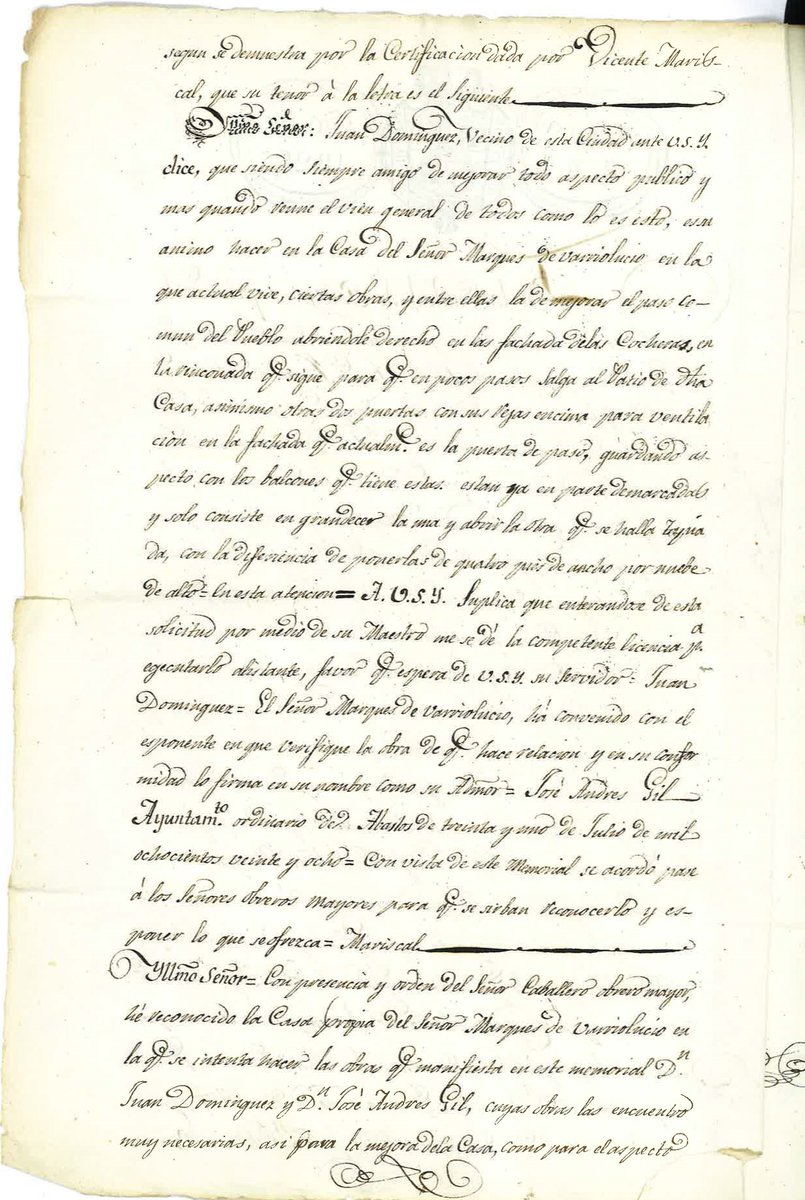 segun se demuestra por la Certificacion dada por Vicente Maris-
cal, que su tenor à la letra es el siguiente
Yllmo Señor: Juan Dominguez, Vecino de esta Ciudad ante V.S.Y.
dice, que siendo siempre amigo de mejorar todo aspecto publico y
mas quando reune el vien general de todos como lo es esto, es su
animo hacer en la Casa del Señor Marques de Varriolucio en la
que actual vive, ciertas obras, y entre ellas la de mejorar el paso co-
mun del Pueblo abriendole derecho en las fachada delas Cocheras, en
la rinconada qe. sigue para qe. en pocos pasos salga al Patio de dha
Casa, asimismo otras dos puertas con sus rejas encima para ventila
cion en la fachada qe. actualmte. es la puerta de paso, guardando as-
pecto con los balcones qe. tiene estas estan ya en parte demarcadas
y solo consiste en grandecer la una y abrir la otra qe. se halla
da, con la diferiencia de ponerlas de quatro pies de ancho por nuebe
de alto= En esta atencion= A. V.S.Y. Suplica que enterandose de esta
solicitud por medio de su Maestro me se dé la competente licencia pa
egecutarlo alistante, favor qe. espera de V.S.Y. su servidor= Juan
Dominguez= El Señor Marques de Varriolucio, há convenido con el
esponente en que verifique la obra de qe. hace relacion y en su confor
midad lo firma en su nombre como su Admor= José Andres Gil
Ayuntamto. ordinario de Abastos de treinta y uno de Julio de mil
ochocientos veinte y ocho= Con vista de este Memorial se acordó pase
à los Señores obreros mayores para qe. se sirban reconocerlo y es-
poner lo que se ofrezca= Mariscal
Yllmo Señor= Con presencia y orden del Señor Caballero obrero mayor,
hé reconocido la Casa propia del Señor Marques de Varriolucio en
la qe. se intenta hacer las obras qe. manifiesta en este memorial Dn.
Juan Dominguez y Dn. José Andres Gil, cuyas obras las encuentro
muy necesarias, asi para la mejora dela Casa, como para el aspecto